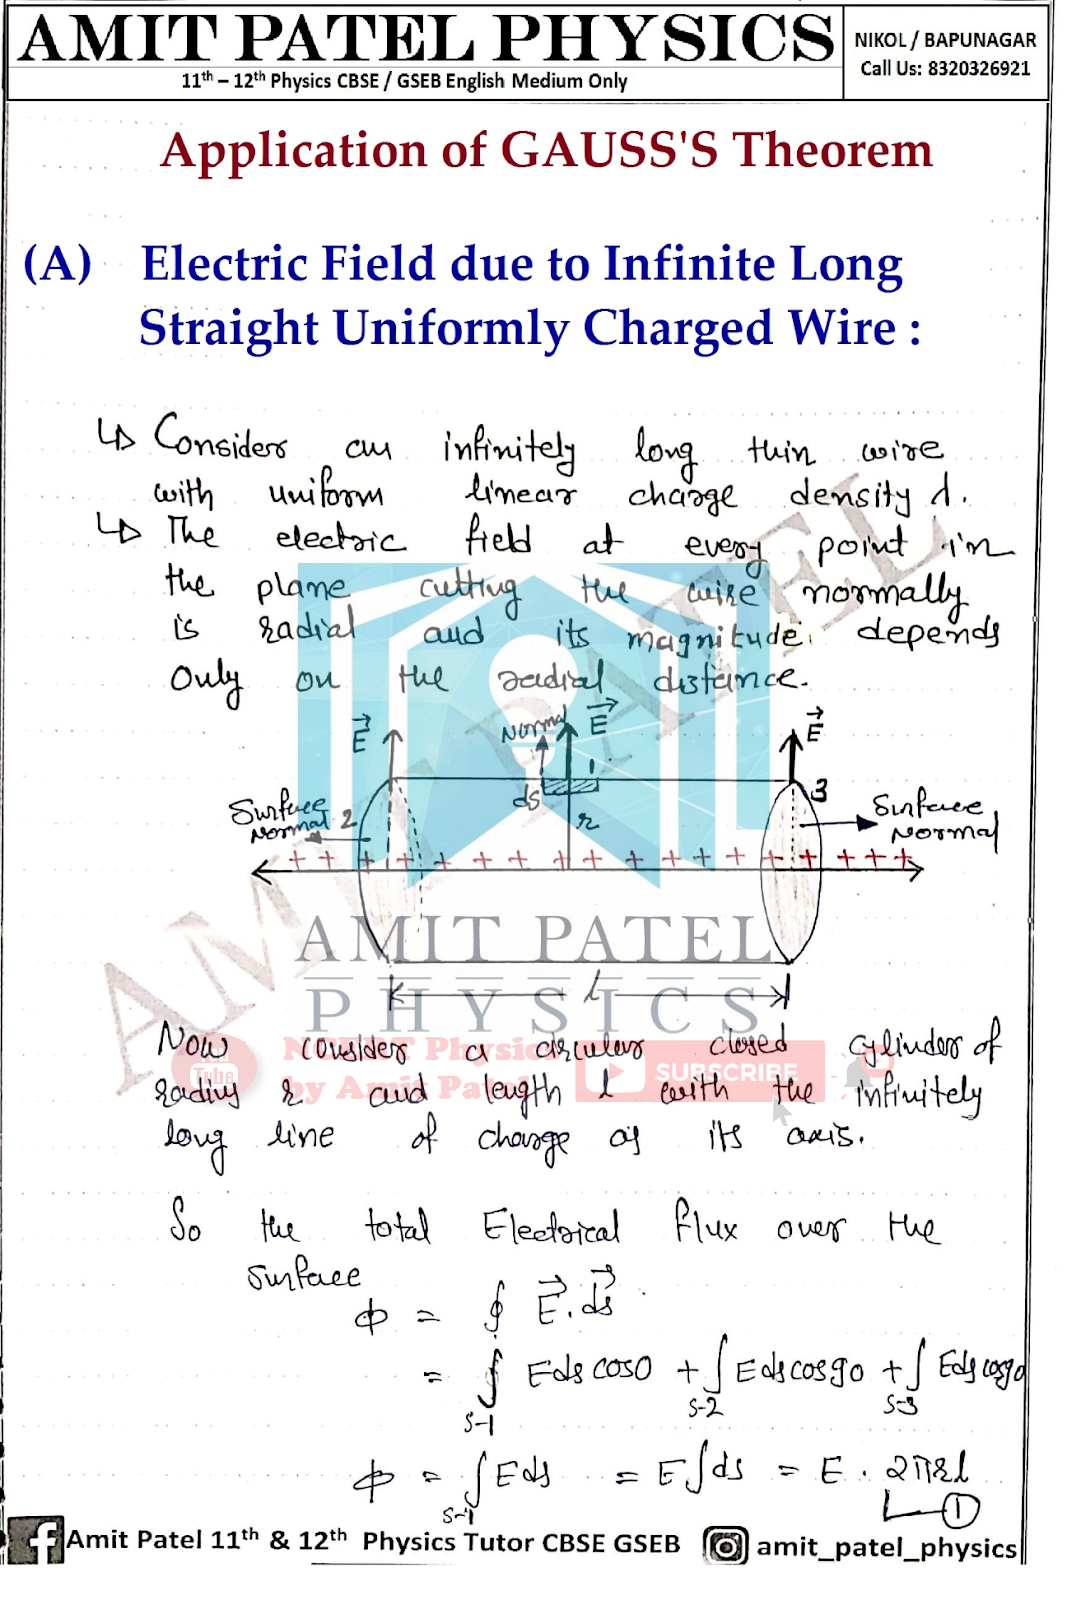 AMIT PATEL PHYSICS
11th – 12th Physics CBSE / GSEB English Medium Only
NIKOL / BAPUNAGAR
Call Us: 8320326921
Application of GAUSS'S Theorem
(A) Electric Field due to Infinite Long
Straight Uniformly Charged Wire :
↳ Considers an infinitely long thin wire
with uniform linear charge density λ.
↳ The electric field at every point in
the plane cutting the wire normally
is radial and its magnitude depends
only on the radial distance.
E⃗ Normal E⃗ E⃗
1
ds
3
Surface
Normal 2
r
Surface
Normal
+ + + + + + + + + + + + + + + + +
AMIT PATEL
PHYSICS
l
Now consider a circular closed cylinder of
radius r and length l with the infinitely
long line of charge as its axis.
You Tube
NEET Physics
by Amit Patel
SUBSCRIBE
So the total Electrical flux over the
surface
ϕ = ∮ E⃗.ds⃗
= ∮ Eds cos0 + ∫ Eds cos90 + ∫ Eds cos90
S-1 S-2 S-3
ϕ = ∫ Eds = E∫ds = E . 2πrl
S-1
①
Amit Patel 11th & 12th Physics Tutor CBSE GSEB
amit_patel_physics
AMIT PATEL